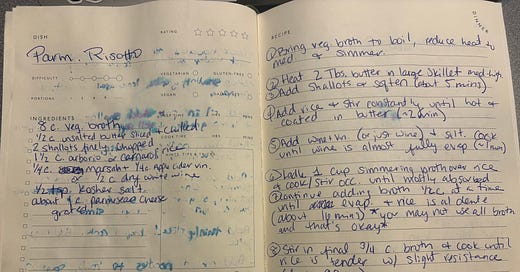 DISH
RATING
Parm. Risotto
DIFFICULTY
VEGETARIAN
GLUTEN-FREE
PORTIONS
VEGAN
INGREDIENTS
8 c. veg broth
1/2 c. unsalted butter sliced + chilled
2 shallots finely chopped
1 1/2 c. arborio or carnaroli rice
1/4 c. marsala + 1/4 c. apple cider vin.
or 1/2 c. dry white wine
1/2 tsp. kosher salt
about 4 c. parmesan cheese
RECIPE
DINNER
① Bring veg. broth to boil, reduce heat to
med & simmer.
② Heat 2 Tbs. butter in large skillet med-high
③ Add shallots & soften (about 5 mins)
④ Add rice & stir constantly until hot &
coated in butter (~2 min)
⑤ Add wine + vin. (or just wine) & salt. Cook
until wine is almost fully evap
⑥ Ladle 1 cup simmering broth over rice
& cook/stir occ. until mostly absorbed
⑦ Continue adding broth 1/2 c. at a time
until evap + rice is al dente
(about 16 mins) *you may not use all broth
and that's okay*
⑧ Stir in final 3/4 c. broth & cook until
rice is tender w/ slight resistance